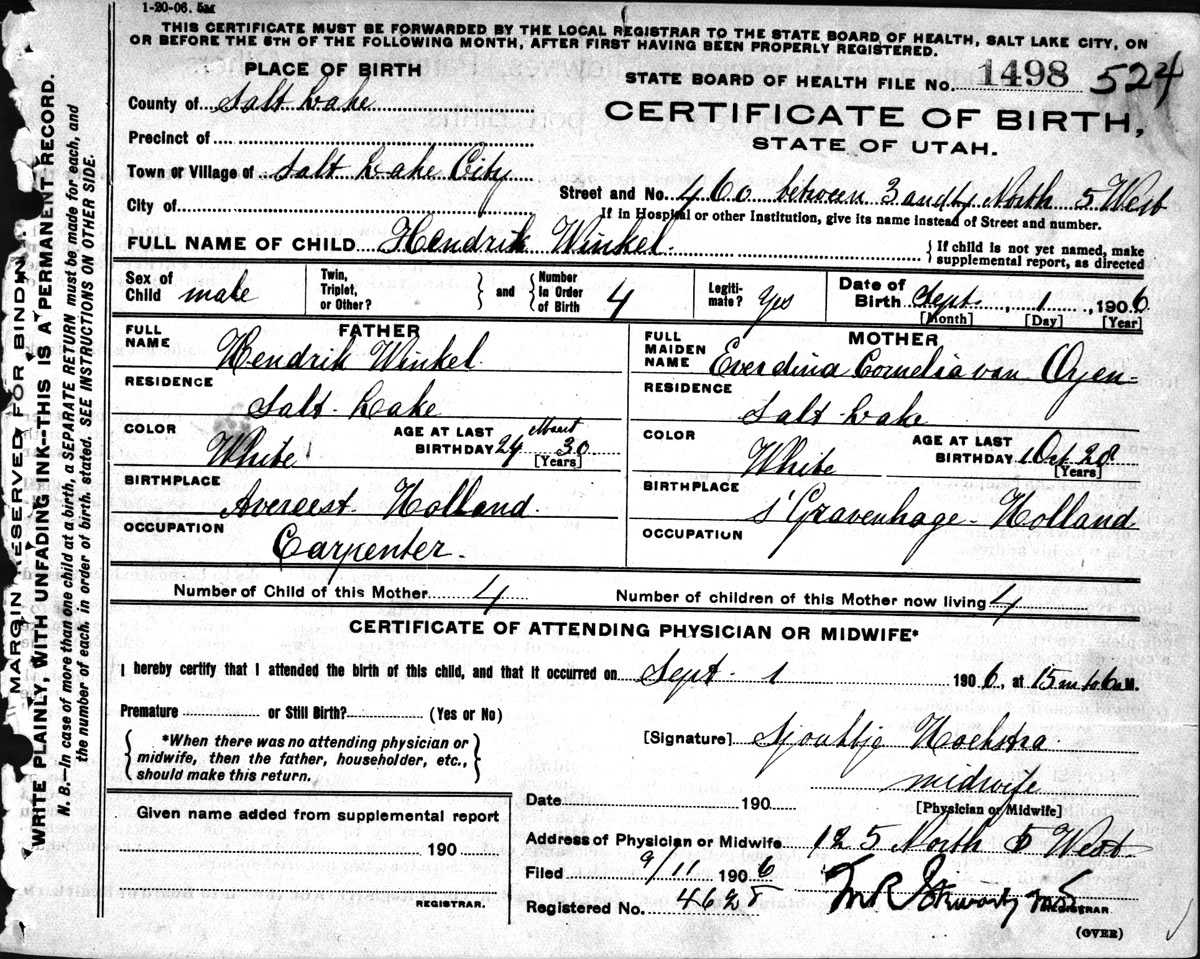 1-20-06. 5M
THIS CERTIFICATE MUST BE FORWARDED BY THE LOCAL REGISTRAR TO THE STATE BOARD OF HEALTH, SALT LAKE CITY, ON
OR BEFORE THE 5TH OF THE FOLLOWING MONTH, AFTER FIRST HAVING BEEN PROPERLY REGISTERED.
PLACE OF BIRTH
STATE BOARD OF HEALTH FILE No. 1498 524
County of Salt Lake
CERTIFICATE OF BIRTH,
STATE OF UTAH.
Precinct of
Town or Village of Salt Lake City
Street and No. 460 between 3 and 4 North 5 West
City of
If in Hospital or other Institution, give its name instead of Street and number.
FULL NAME OF CHILD Hendrik Winkel
If child is not yet named, make
supplemental report, as directed
Sex of Child male
Twin, Triplet, or Other?
and
Number in Order of Birth 4
Legitimate? Yes
Date of Birth Sept. 1, 1906
[Month] [Day] [Year]
FATHER
FULL NAME Hendrik Winkel
RESIDENCE
Salt Lake
COLOR White
AGE AT LAST BIRTHDAY 24 Maart 30
[Years]
BIRTHPLACE
Avereest Holland
OCCUPATION
Carpenter
MOTHER
FULL MAIDEN NAME Everdina Cornelia van Oyen
RESIDENCE
Salt Lake
COLOR White
AGE AT LAST BIRTHDAY Oct 28
[Years]
BIRTHPLACE
s'Gravenhage - Holland
OCCUPATION
Number of Child of this Mother 4
Number of children of this Mother now living 4
CERTIFICATE OF ATTENDING PHYSICIAN OR MIDWIFE*
I hereby certify that I attended the birth of this child, and that it occurred on Sept. 1 1906, at 15 m to 6 M.
Premature or Still Birth? (Yes or No)
*When there was no attending physician or
midwife, then the father, householder, etc.,
should make this return.
[Signature] Sjoukje Hoekstra
midwife
[Physician or Midwife]
Date 190
Given name added from supplemental report
190
REGISTRAR.
Address of Physician or Midwife 125 North 5 West
Filed 9/11 1906
Registered No. 4628
REGISTRAR
(OVER)
MARGIN RESERVED FOR BINDING
WRITE PLAINLY, WITH UNFADING INK--THIS IS A PERMANENT RECORD.
N. B.—In case of more than one child at a birth, a SEPARATE RETURN must be made for each, and
the number of each, in order of birth, stated. SEE INSTRUCTIONS ON OTHER SIDE.